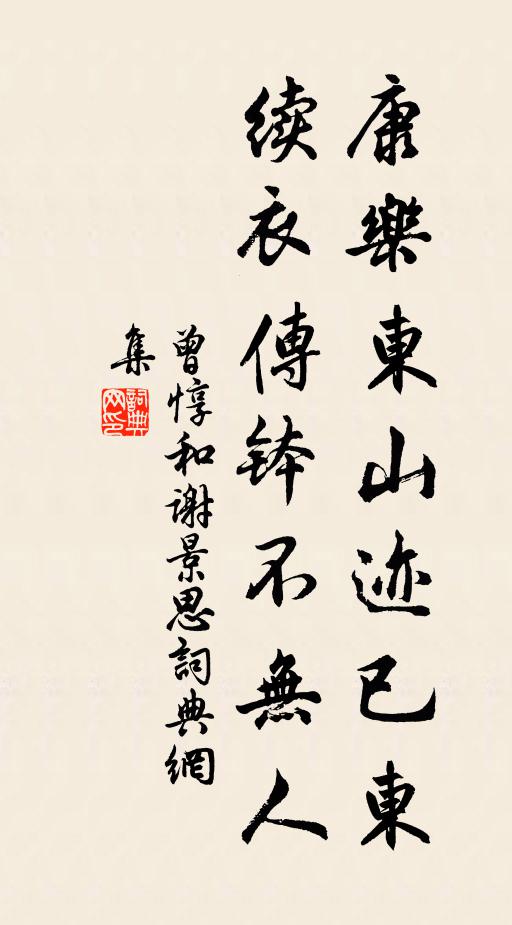 康樂東山迹已東
续衣傳鉢不無人
曾惇和谢景思詞典網
集
詞典网印